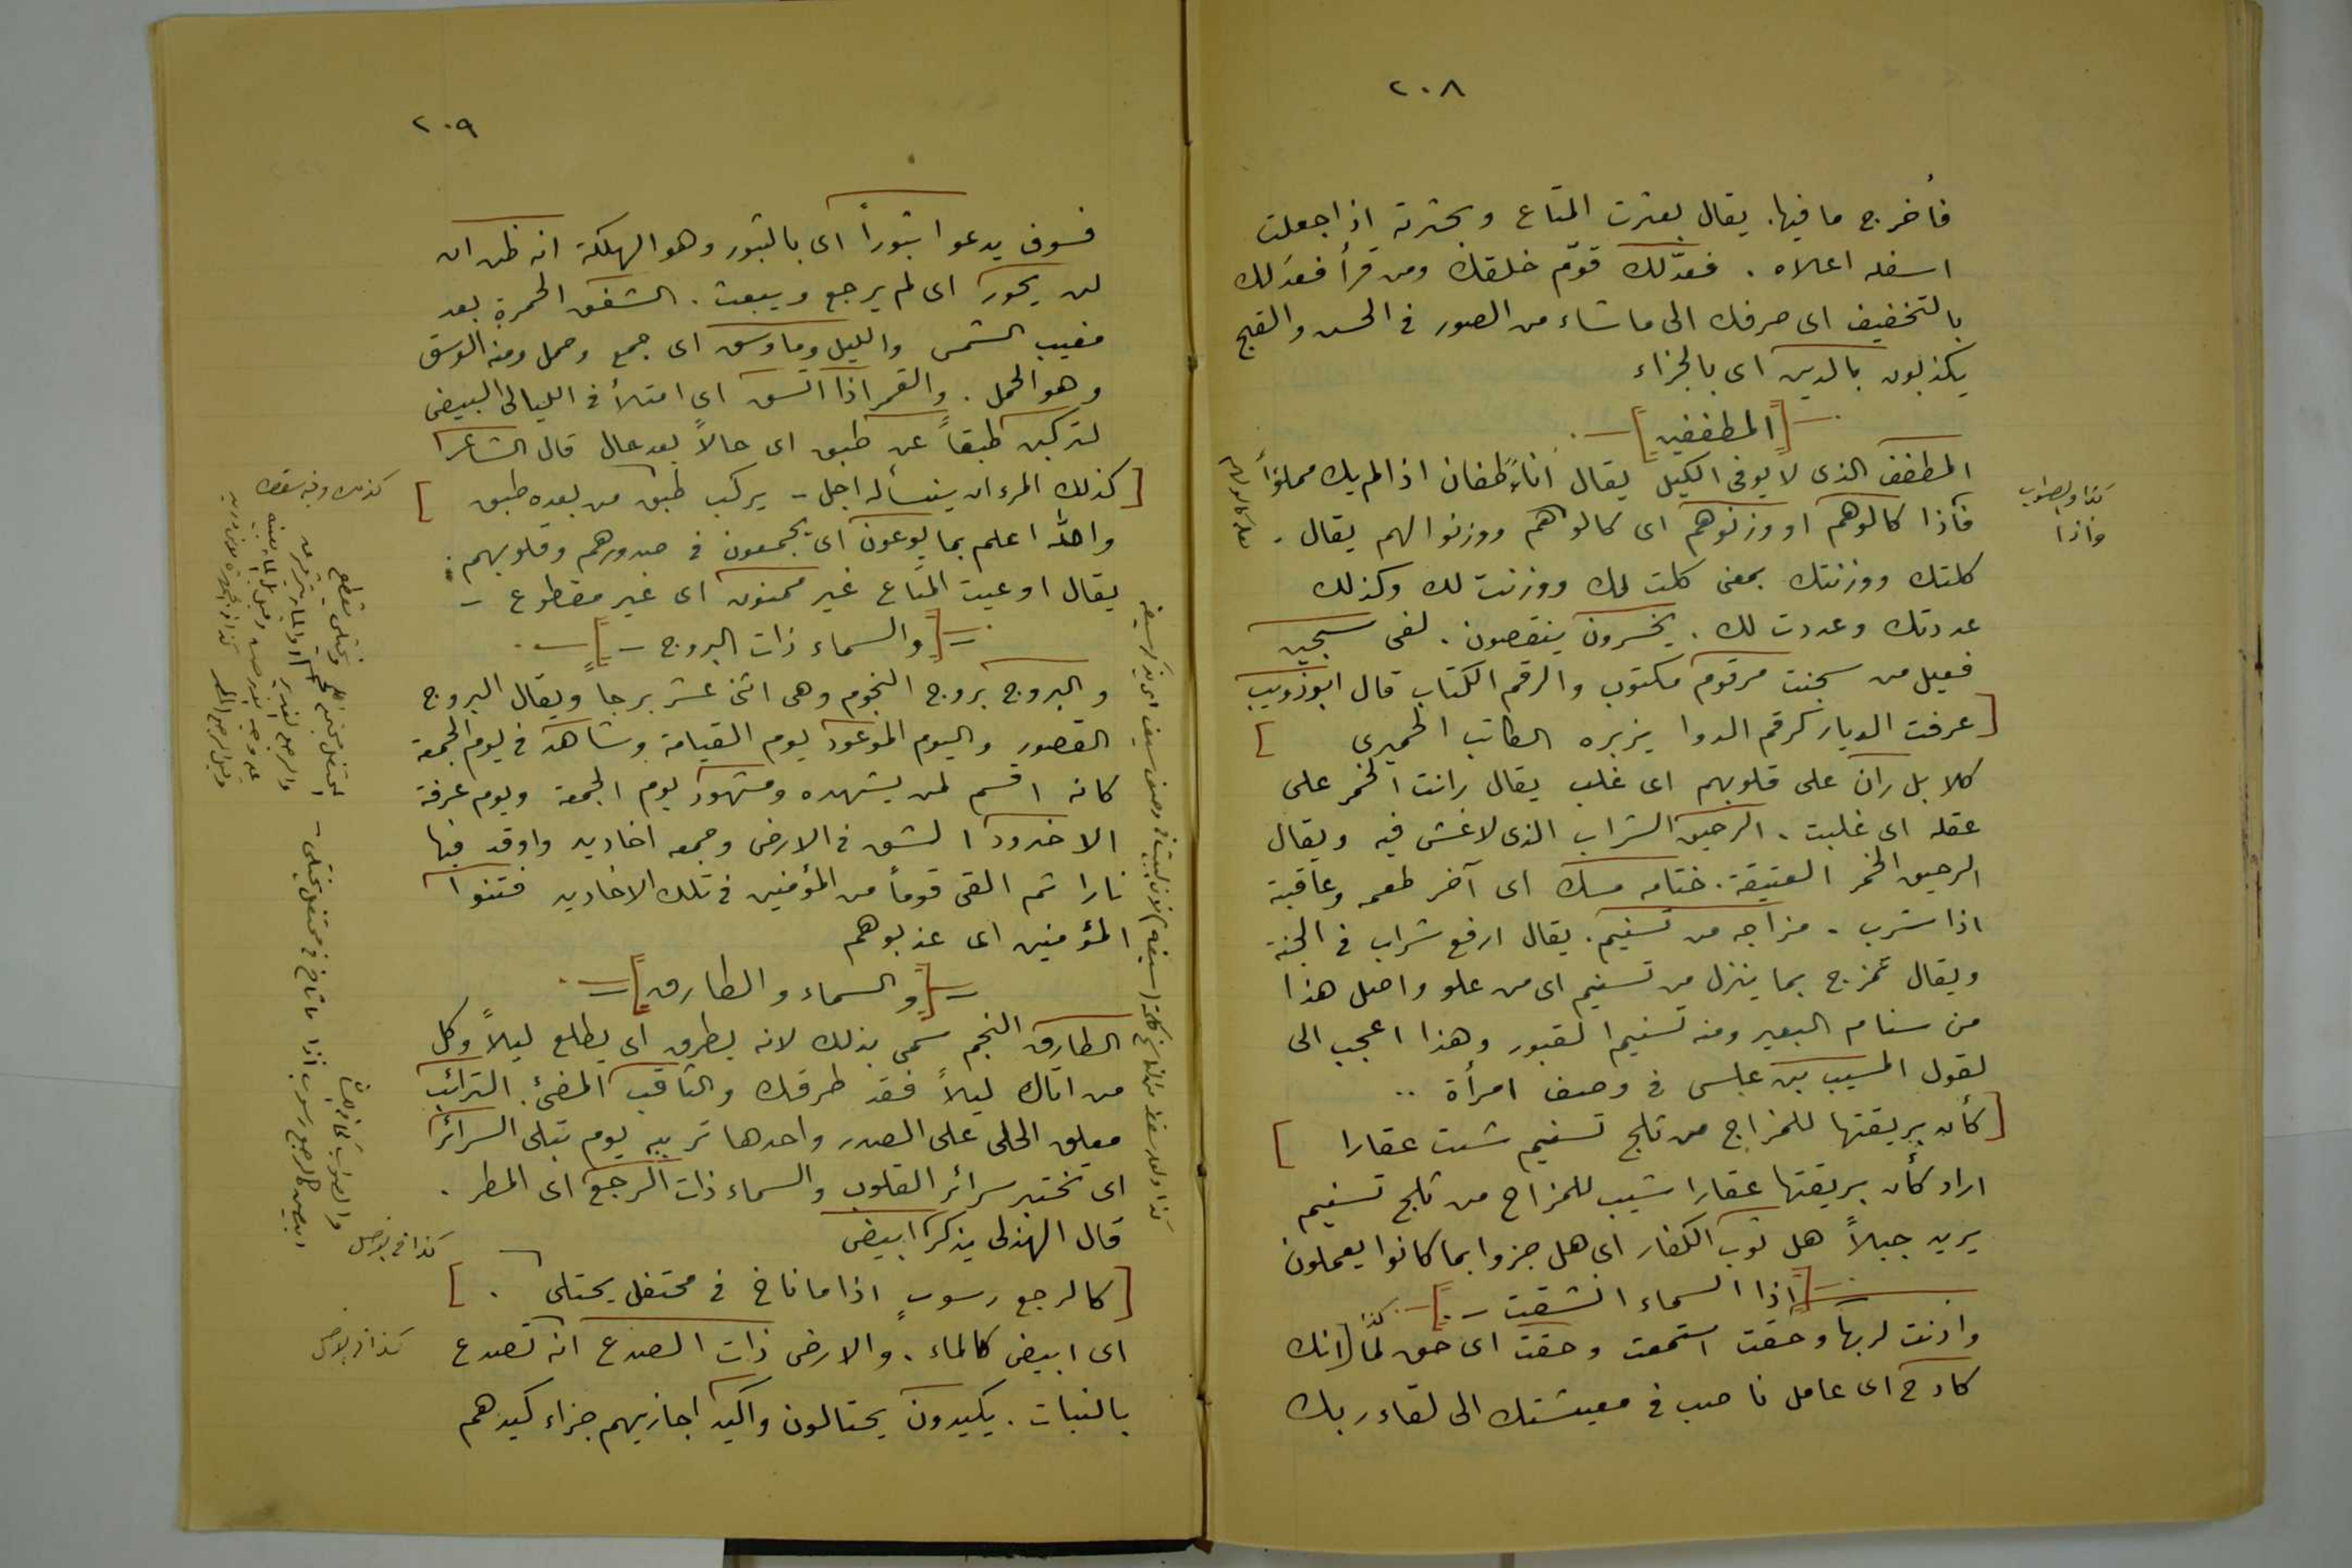 ٢٠٨
فأخرج ما فيها. يقال بعثرت المتاع وبحثرته اذا جعلت
اسفله اعلاه . فعدّلك قوّم خلقك ومن قرأ فعدَلك
بالتخفيف اى صرفك الى ماشاء من الصور فى الحسن والقبح
يكذبون بالدين اى بالجزاء
[المطففين]
المطفف الذى لا يوفى الكيل يقال اناءٌ طفان اذا لم يك مملؤاً
فأذا كالوهم او وزنوهم اى كالوا هم ووزنوا لهم يقال .
كلتك ووزنتك بمعنى كلت لك ووزنت لك وكذلك
عددتك وعددت لك . يخسرون ينقصون . لفى سجين
فعيل من سجنت مرقوم مكتوب والرقم الكتاب قال ابوذويب
[عرفت الديار كرقم الدوا يزبره الكاتب الحميرى ]
كلا بل ران على قلوبهم اى غلب يقال رانت الخمر على
عقله اى غلبت . الرحيق الشراب الذى لا غش فيه ويقال
الرحيق الخمر العتيقة . ختامه مسك اى آخر طعمه وعاقبته
اذا شرب . مزاجه من تسنيم . يقال ارفع شراب فى الجنة
ويقال تمزج بما ينزل من تسنيم اى من علو واصل هذا
من سنام البعير ومنه تسنيم القبور وهذا اعجب الى
لقول المسيب بن علس فى وصف امرأة ..
[كأن بريقتها للمزاج من ثلج تسنيم شيت عقارا ]
اراد كأن بريقتها عقارا شيب للمزاج من ثلج تسنيم
يريد جبلاً هل ثوب الكفار اى هل جزوا بما كانوا يعملون
[اذا السماء انشقت - ]
واذنت لربها وحقت استمعت وحقت اى حق لها انك
كادح اى عامل ناصب فى معيشتك الى لقاء ربك
كذا والصواب
واذا
٢٠٩
فسوف يدعوا ثبوراً اى بالثبور وهو الهلكة انه ظن ان
لن يحور اى لم يرجع ويبعث . الشفق الحمرة بعد
مغيب الشمس والليل وما وسق اى جمع وحمل ومنه الوسق
وهو الحمل . والقمر اذا اتسق اى امتلأ فى الليالى البيض
لتركبن طبقاً عن طبق اى حالاً بعد حال قال الشاعر
[كذلك المرء ان ينسأله اجل - يركب طبق من بعده طبق ]
والله اعلم بما يوعون اى يجمعون فى صدورهم وقلوبهم .
يقال اوعيت المتاع غير ممنون اى غير مقطوع -
[والسماء ذات البروج - ]
والبروج بروج النجوم وهى اثنى عشر برجاً ويقال البروج
القصور واليوم الموعود يوم القيامة وشاهد فى يوم الجمعة
كانه اقسم لمن يشهده ومشهود يوم الجمعة ويوم عرفة
الاخدود الشق فى الارض وجمعه اخاديد واوقد فيها
نارا ثم القى قوماً من المؤمنين فى تلك الاخاديد فتنوا
المؤمنين اى عذبوهم
[والسماء والطارق]
الطارق النجم سمى بذلك لانه يطرق اى يطلع ليلاً وكل
من اتاك ليلاً فقد طرقك والثاقب المضئ . الترائب
معلق الحلى على الصدر واحدها تريبه يوم تبلى السرائر
اى تختبر سرائر القلوب والسماء ذات الرجع اى المطر .
قال الهذلى يذكر ابيض
[كالرجع رسوبٍ اذا ما ثاخ فى محتفل يحتلى . ]
اى ابيض كالماء . والارض ذات الصدع انه تصدع
بالنبات . يكيدون يحتالون واكيد اجازيهم جزاء كيدهم
كذا فى الاصل
كذا فى الاصل